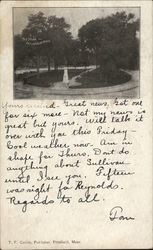 Yours received. Great news. Got one
for six more - Not my name is
great but yours. Will talk it
over with you this Friday -
Cool weather now. Am in
shape for Thurs. Don't do
anything about Sullivan
until I see you. Fifteen
was right for Reynolds.
Regards to all.
Tom
Publisher, Pittsfield, Mass.